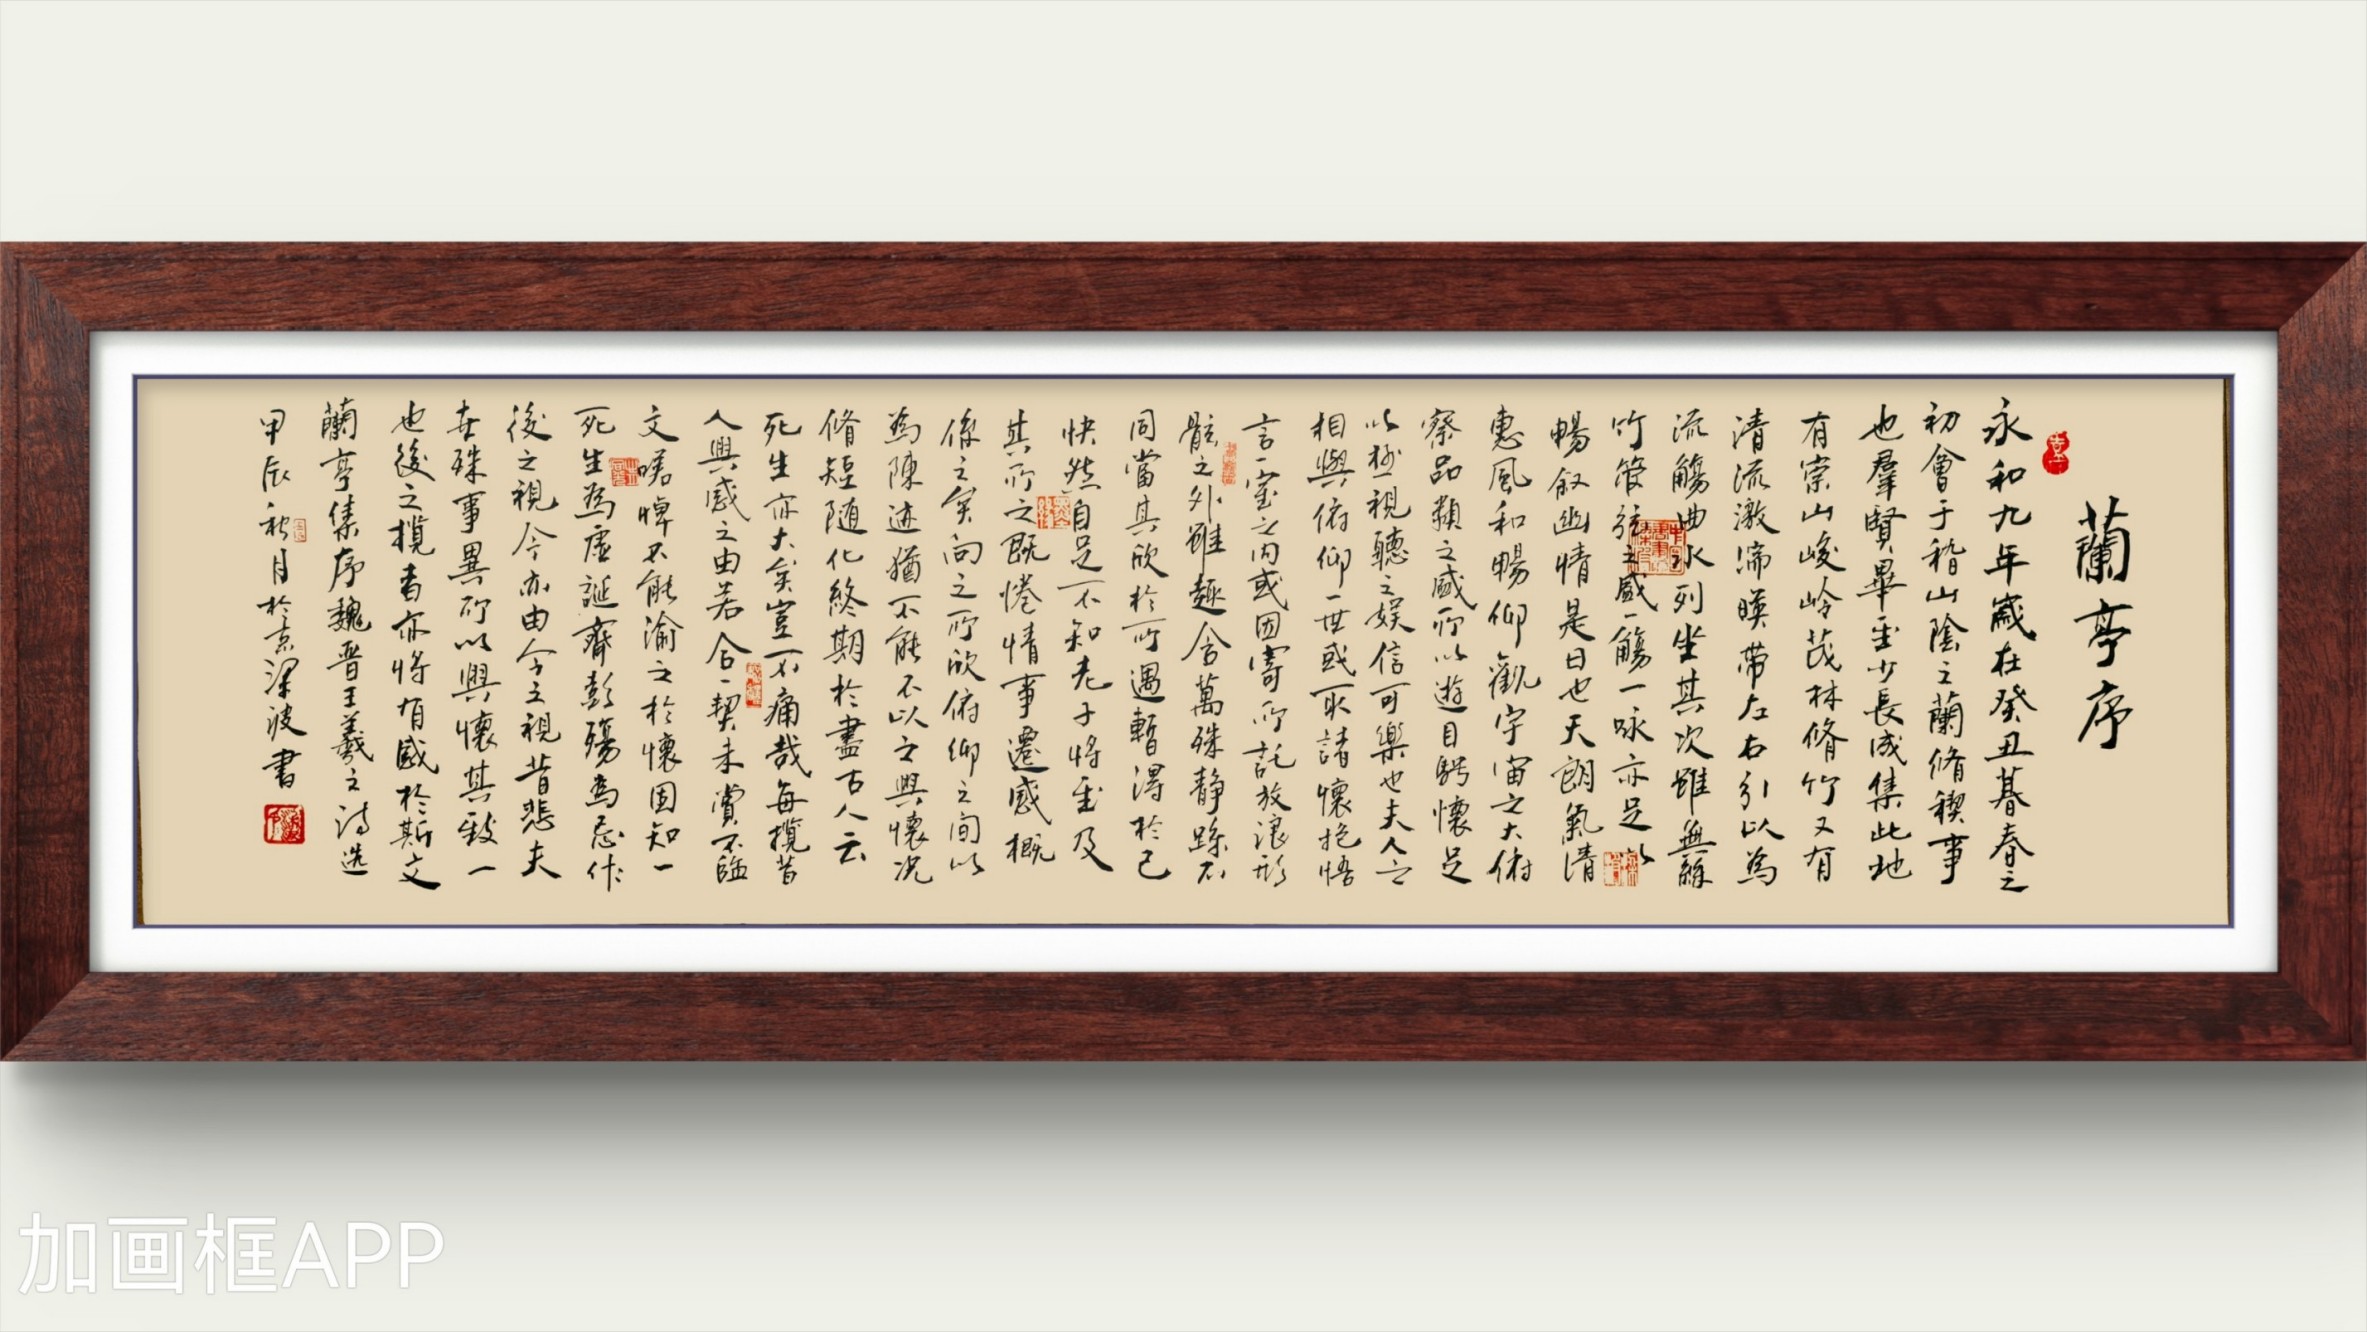 蘭亭序
永和九年歲在癸丑暮春之
初會于稽山陰之蘭脩稧事
也羣賢畢至少長咸集此地
有崇山峻岭茂林脩竹又有
清流激湍暎帶左右引以為
流觴曲水列坐其次雖無絲
竹管弦之盛一觴一咏亦足以
暢叙幽情是日也天朗氣清
惠風和暢仰觀宇宙之大俯
察品類之盛所以遊目騁懷足
以極視聽之娱信可樂也夫人之
相與俯仰一世或取諸懷抱悟
言一室之内或因寄所託放浪形
骸之外雖趣舍萬殊静躁不
同當其欣於所遇暫得於己
快然自足不知老子將至及
其所之既惓情事遷感概
係之矣向之所欣俯仰之間以
為陳迹猶不能不以之興懷況
脩短随化終期於盡古人云
死生亦大矣豈不痛哉每攬昔
人興感之由若合一契未賞不臨
文嗟悼不能渝之於懷固知一
死生為虛誕齊彭殤為忘作
後之視今亦由今之視昔悲夫
世殊事異所以興懷其致一
也後之攬者亦将有感於斯文
蘭亭集序魏晋王羲之诗选
甲辰秋月於京深波書
加画框APP